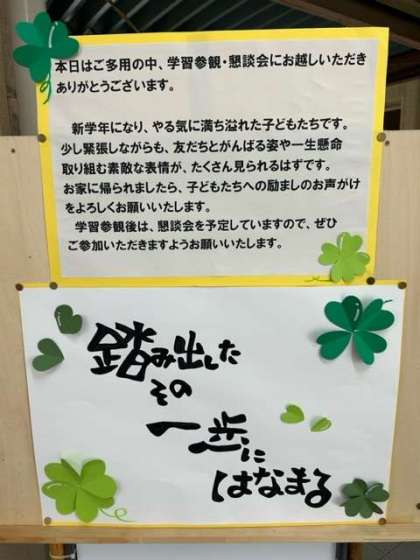 本日はご多用の中、学習参観・懇談会にお越しいただき
ありがとうございます。
新学年になり、やる気に満ち溢れた子どもたちです。
少し緊張しながらも、友だちとがんばる姿や一生懸命
取り組む素敵な表情が、たくさん見られるはずです。
お家に帰られましたら、子どもたちへの励ましのお声がけ
をよろしくお願いいたします。
学習参観後は、懇談会を予定していますので、ぜひ
ご参加いただきますようお願いいたします。
踏み出した
その
一歩に
はなまる